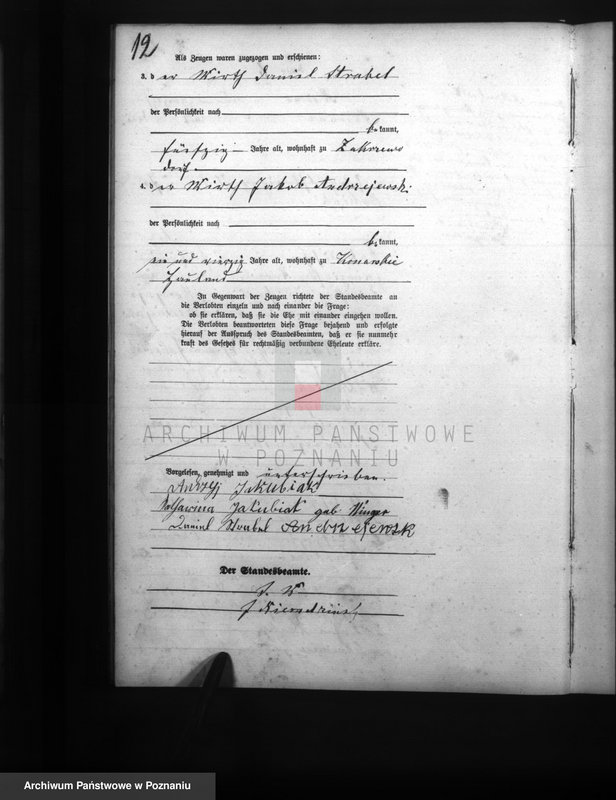 12
Als Zeugen waren zugezogen und erschienen:
3. d er Wirth Daniel Strabel
der Persönlichkeit nach
be kannt,
fünfzig Jahre alt, wohnhaft zu Zakrzewo
dorf
4. d er Wirth Jakob Andrzejewski
der Persönlichkeit nach
be kannt,
ein und vierzig Jahre alt, wohnhaft zu Konarskie
Hauland
In Gegenwart der Zeugen richtete der Standesbeamte an
die Verlobten einzeln und nach einander die Frage:
ob sie erklären, daß sie die Ehe mit einander eingehen wollen.
Die Verlobten beantworteten diese Frage bejahend und erfolgte
hierauf der Ausspruch des Standesbeamten, daß er sie nunmehr
kraft des Gesetzes für rechtmäßig verbundene Eheleute erkläre.
ARCHIWUM PAŃSTWOWE
W POZNANIU
Vorgelesen, genehmigt und unterschrieben.
Andrzj Jakubiak
Jakubiak geb
Daniel Strabel
Der Standesbeamte.
J. V.
Archiwum Państwowe w Poznaniu